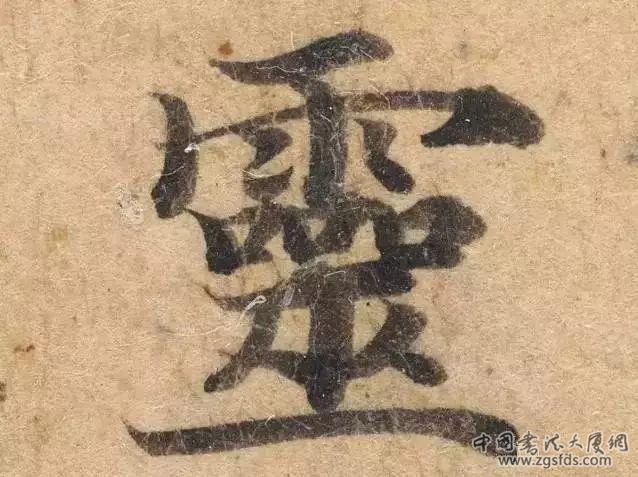 靈
中国书法大厦网
www.zgsfds.com